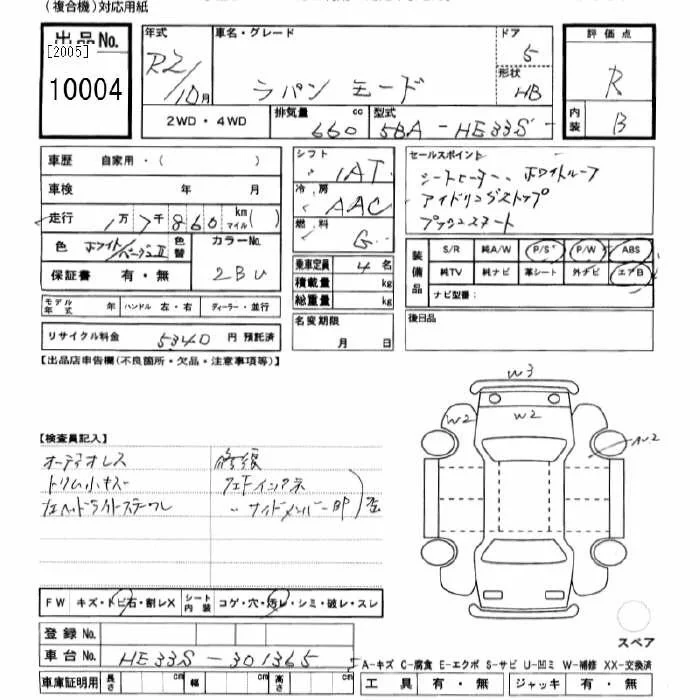 (複合機)対応用紙
出品No.
[2005]
10004
年式
R2/10月
車名・グレード
ラパン モード
ドア
5
形状
HB
評価点
R
内装
B
2WD・4WD
排気量
660 cc
型式
5BA-HE33S
車歴 自家用・( )
車検 年 月
走行 1万7千860 km マイル( )
色 ホワイト/ 色替 カラーNo.
2BU
保証書 有・無
モデル年式 年 ハンドル 左・右 ディーラー・並行
リサイクル料金 5340円 預託済
シフト
IAT
冷房
AAC
燃料
G
乗車定員 4名
積載量 kg
総重量 kg
名変期限
月 日
セールスポイント
シートヒーター、ホワイトルーフ
アイドリングストップ
プッシュスタート
装備品
S/R 純A/W P/S P/W ABS
純TV 純ナビ 革シート 外ナビ エアB
ナビ型番:
後日品
【出品店申告欄(不良箇所・欠品・注意事項等)】
【検査員記入】
オーディオレス
トリム小キズ
修復
サイドメンバー
左
W3
W2
W2
W2
FW キズ・トビ石・割レX シート内装 コゲ・穴・汚レ・シミ・破レ・スレ
登録No.
車台No. HE33S-301365
車庫証明用 長さ cm 幅 cm 高さ cm
スペア
A-キズ C-腐食 E-エクボ S-サビ U-凹ミ W-補修 XX-交換済
工具 有・無 ジャッキ 有・無